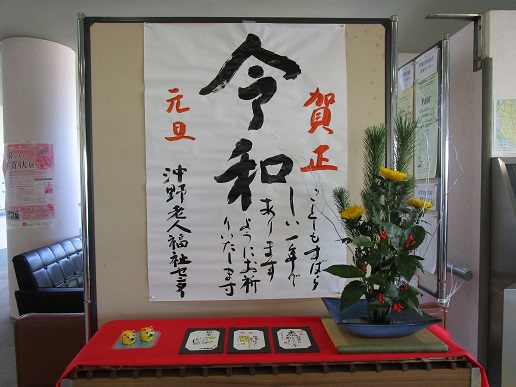 賀正
令和
ことしもすばら
しい一年で
あります
ようにお祈
りいたします
元旦
沖野老人福祉センター